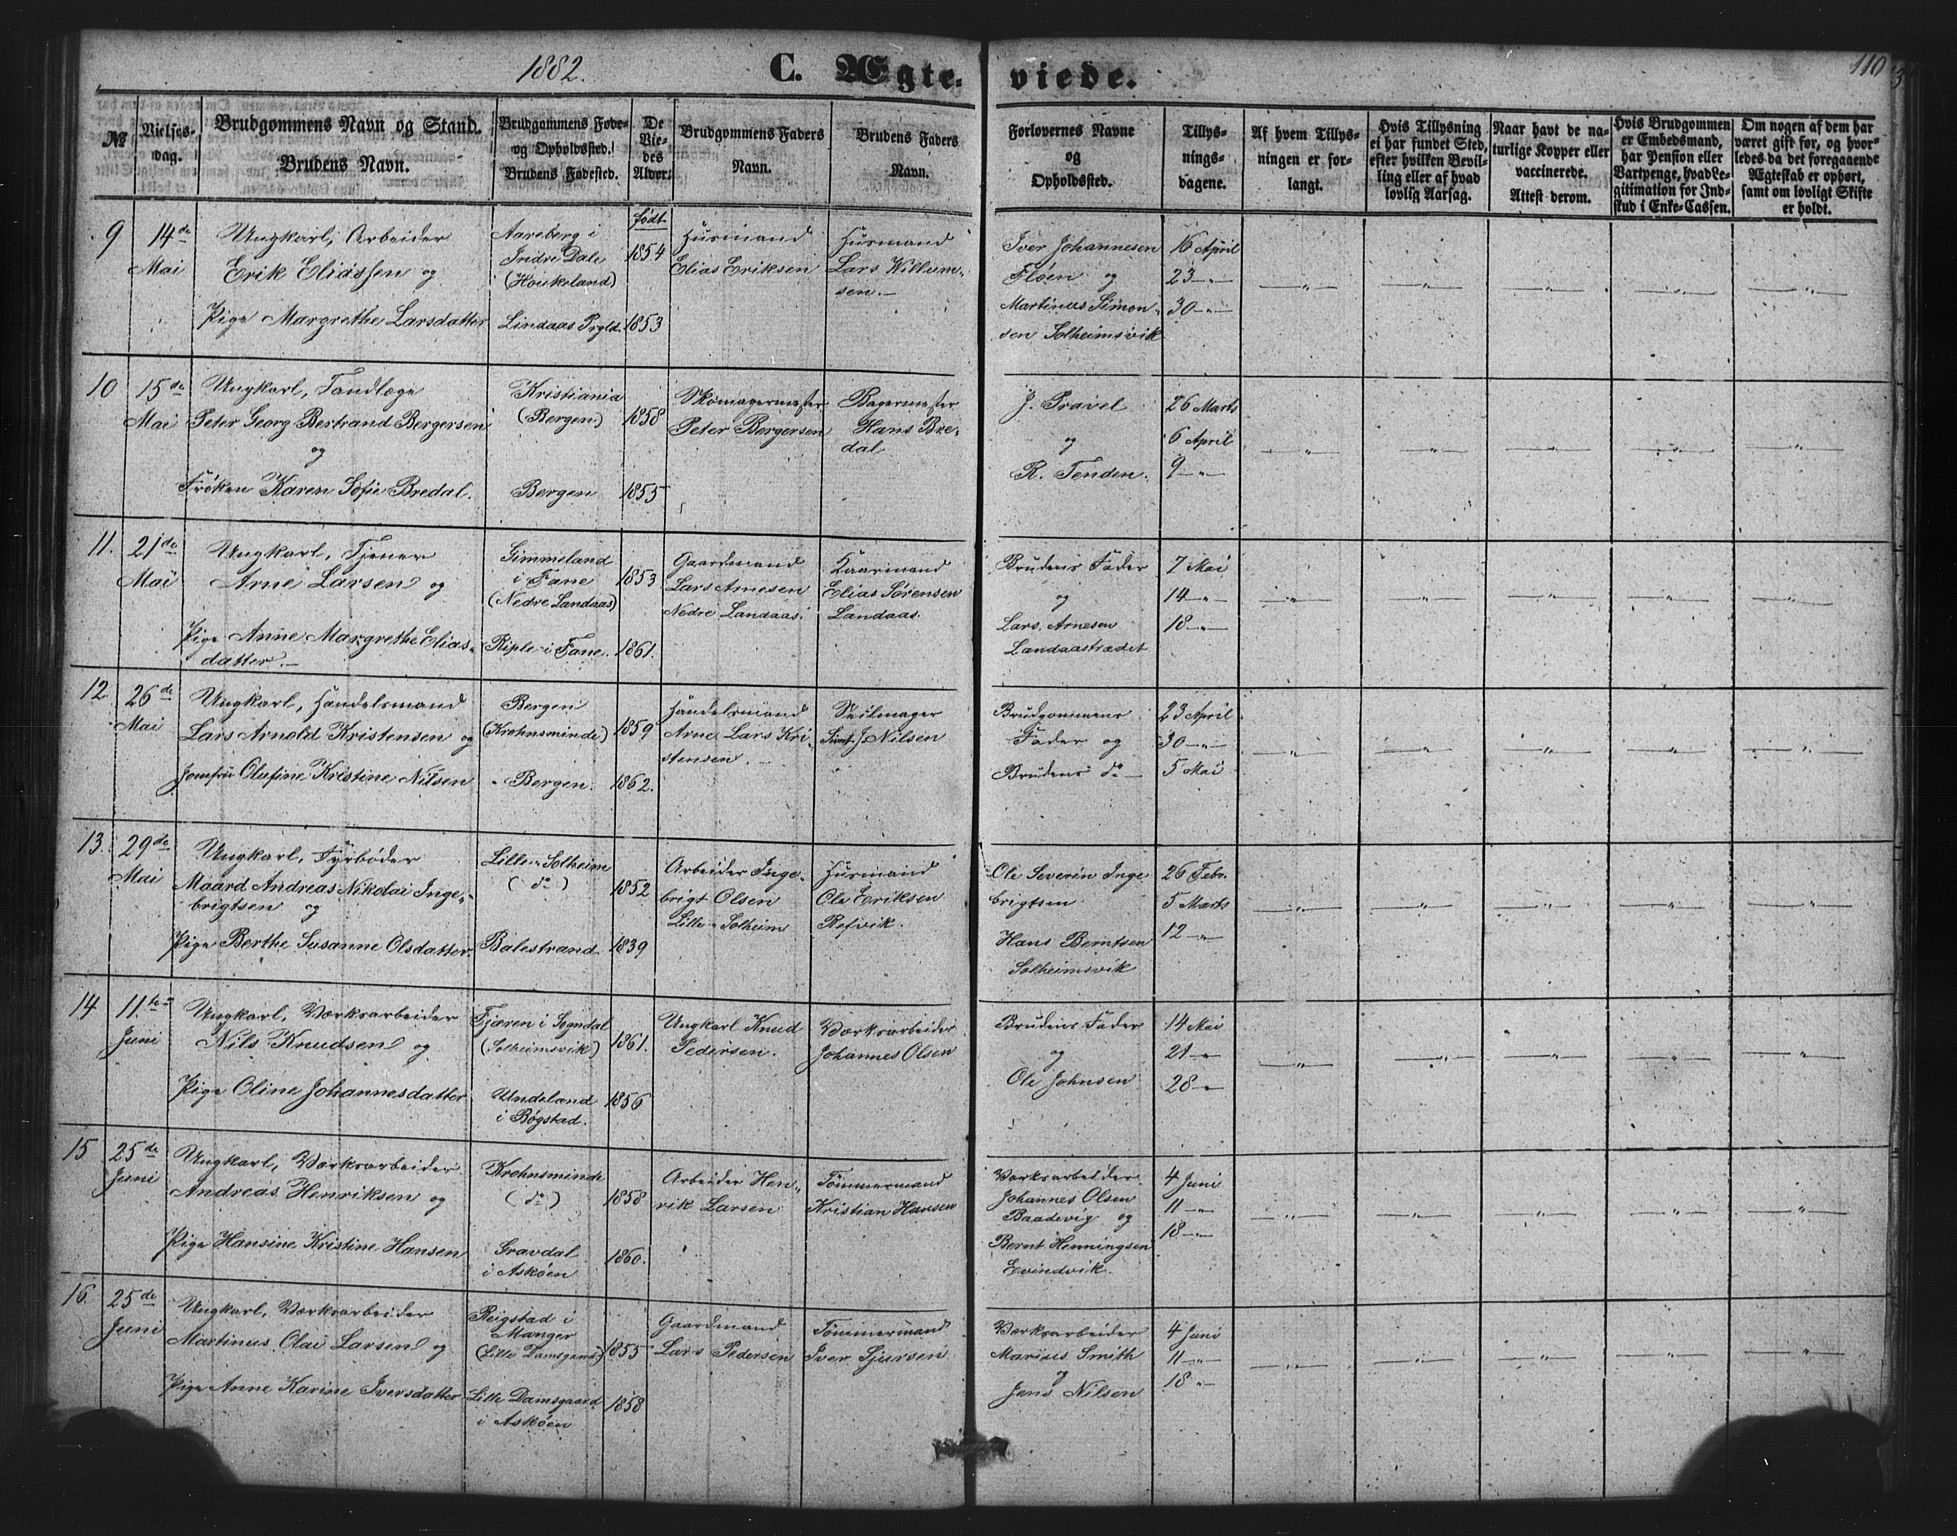 1882.
C. Ægte-
viede.
110
3
№
Vielses-
dag.
Brudgommens Navn og Stand.
Brudens Navn.
Brudgommens Føde-
og Opholdssted.
Brudens Fødested.
De
Vie-
des
Alder.
Brudgommens Faders
Navn.
Brudens Faders
Navn.
Forlovernes Navne
og
Opholdssted.
Tillys-
nings-
dagene.
Af hvem Tillys-
ningen er for-
langt.
Hvis Tillysning
ei har fundet Sted,
efter hvilken Bevil-
ling eller af hvad
lovlig Aarsag.
Naar havt de na-
turlige Kopper eller
vaccinerede.
Attest derom.
Hvis Brudgommen
er Embedsmand,
har Pension eller
Vartpenge, hvad Le-
gitimation for Ind-
skud i Enke-Cassen.
Om nogen af dem har
været gift før, og hvor-
ledes da det foregaaende
Ægteskab er ophørt,
samt om lovligt Skifte
er holdt.
9
14de
Mai
Ungkarl, Arbeider
Erik Eliassen og
Pige Margrethe Larsdatter
Aareberg i
Indre Dale
(Houkeland)
Lindaas Prgld.
født
1854
1853
Husmand
Elias Eriksen
Husmand
Lars Willum-
sen.
Iver Johannesen
Fløen og
Martinus Simon-
sen Solheimsvik
16 April
23 — „ —
30 — „ —
10
15de
Mai
Ungkarl, Tandlæge
Peter Georg Bertrand Bergersen
og
Frøken Karen Sofie Bredal.
Kristiania
(Bergen)
Bergen
1858
1855
Skomagermester
Peter Bergersen
Bagermester
Hans Bre-
dal
J. Pravel
og
R. Tenden.
26 Marts
6 April
9 — „ —
11.
21de
Mai
Ungkarl, Tjener
Arne Larsen og
Pige Anne Margrethe Elias-
datter.
Gimmeland
i Fane
(Nedre Landaas)
Riple i Fane.
1853
1861.
Gaardmand
Lars Arnesen
Nedre Landaas.
Kaarmand
Elias Sørensen
Landaas.
Brudens Fader
og
Lars Arnesen
Landaastrædet
7 Mai
14 — „ —
18 — „ —
12.
26de
Mai
Ungkarl, Handelsmand
Lars Arnold Kristensen og
Jomfru Olufine Kristine Nilsen
Bergen
(Krohnsminde)
Bergen.
1859
1862.
Handelsmand
Arne Lars Kri-
stensen.
Seilmager
J. Nilsen
Brudgommens
Fader og
Brudens do
23 April
30 — „ —
5 Mai
13.
29de
Mai
Ungkarl, Fyrbøder
Maard Andreas Nikolai Inge-
brigtsen og
Pige Berthe Susanne Olsdatter.
Lille-Solheim
(do)
Balestrand.
1852
1839
Arbeider Inge-
brigt Olsen
Lille-Solheim
Husmand
Ole Eriksen
Refvik.
Ole Severin Inge
brigtsen
Hans Berntsen
Solheimsvik
26 Febr.
5 Marts
12 — „ —
14
11te
Juni
Ungkarl, Værksarbeider
Nils Knudsen og
Pige Oline Johannesdatter
Fjæren i Sogndal
(Solheimsvik)
Undeland
i Bøgstad.
1861.
1856
Ungkarl Knud
Pedersen.
Værksarbeider
Johannes Olsen
Brudens Fader
og
Ole Johnsen
14 Mai
21 — „ —
28 — „ —
15
25de
Juni
Ungkarl, Værksarbeider
Andreas Henriksen og
Pige Hansine Kristine Hansen
Krohnsminde
(do)
Gravdal
i Askøen
1858
1860.
Arbeider Hen-
rik Larsen
Tømmermand
Kristian Hansen
Værksarbeider
Johannes Olsen
Baadevig og
Bernt Henningsen
Evindvik.
4 Juni
11 — „ —
18 — „ —
16.
25de
Juni
Ungkarl, Værksarbeider
Martinus Olai Larsen og
Pige Anne Karine Iversdatter
Reigstad i
Manger
(Lille Damsgaard)
Lille Damsgaard
i Askøen
1855
1858
Gaardmand
Lars Pedersen
Tømmermand
Iver Sjursen
Værksarbeider
Marius Smith
og
Jens Nilsen
4 Juni
11 — „ —
18 — „ —